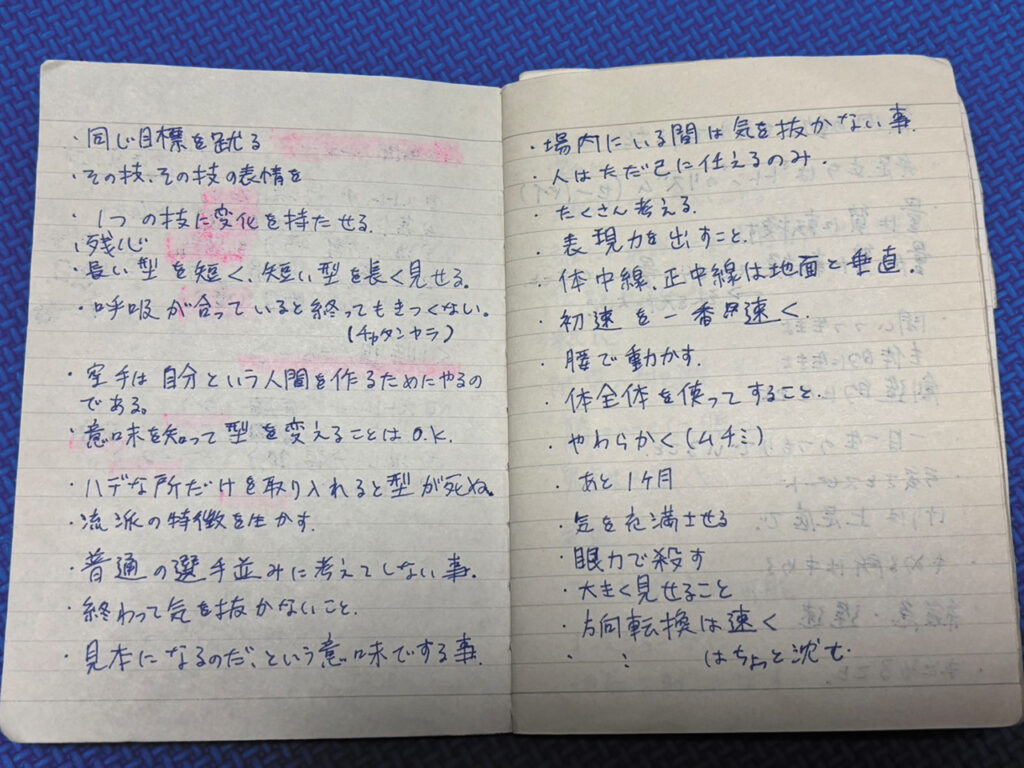 ・同じ目標を蹴る
・その技、その技の表情を
・1つの技に変化を持たせる。
（残心
・長い型を短く、短い型を長く見せる。
・呼吸が合っていると終ってもきつくない。
(チャタンヤラ)
・空手は自分という人間を作るためにやるの
である。
・意味を知って型を変えることはO.K.
・ハデな所だけを取り入れると型が死ぬ。
・流派の特徴を生かす。
・普通の選手並みに考えてしない事。
・終わって気を抜かないこと。
・見本になるのだ、という意味でする事。
・場内にいる間は気を抜かない事。
・人はただ己に仕えるのみ。
・たくさん考える。
・表現力を出すこと。
・体中線、正中線は地面と垂直。
・初速を一番速く。
・腰で動かす。
・体全体を使ってすること。
・やわらかく(ムチミ)
・あと1ヶ月
・気を充満させる
・眼力で殺す
・大きく見せること
・方向転換は速く
・ : はちょっと沈む